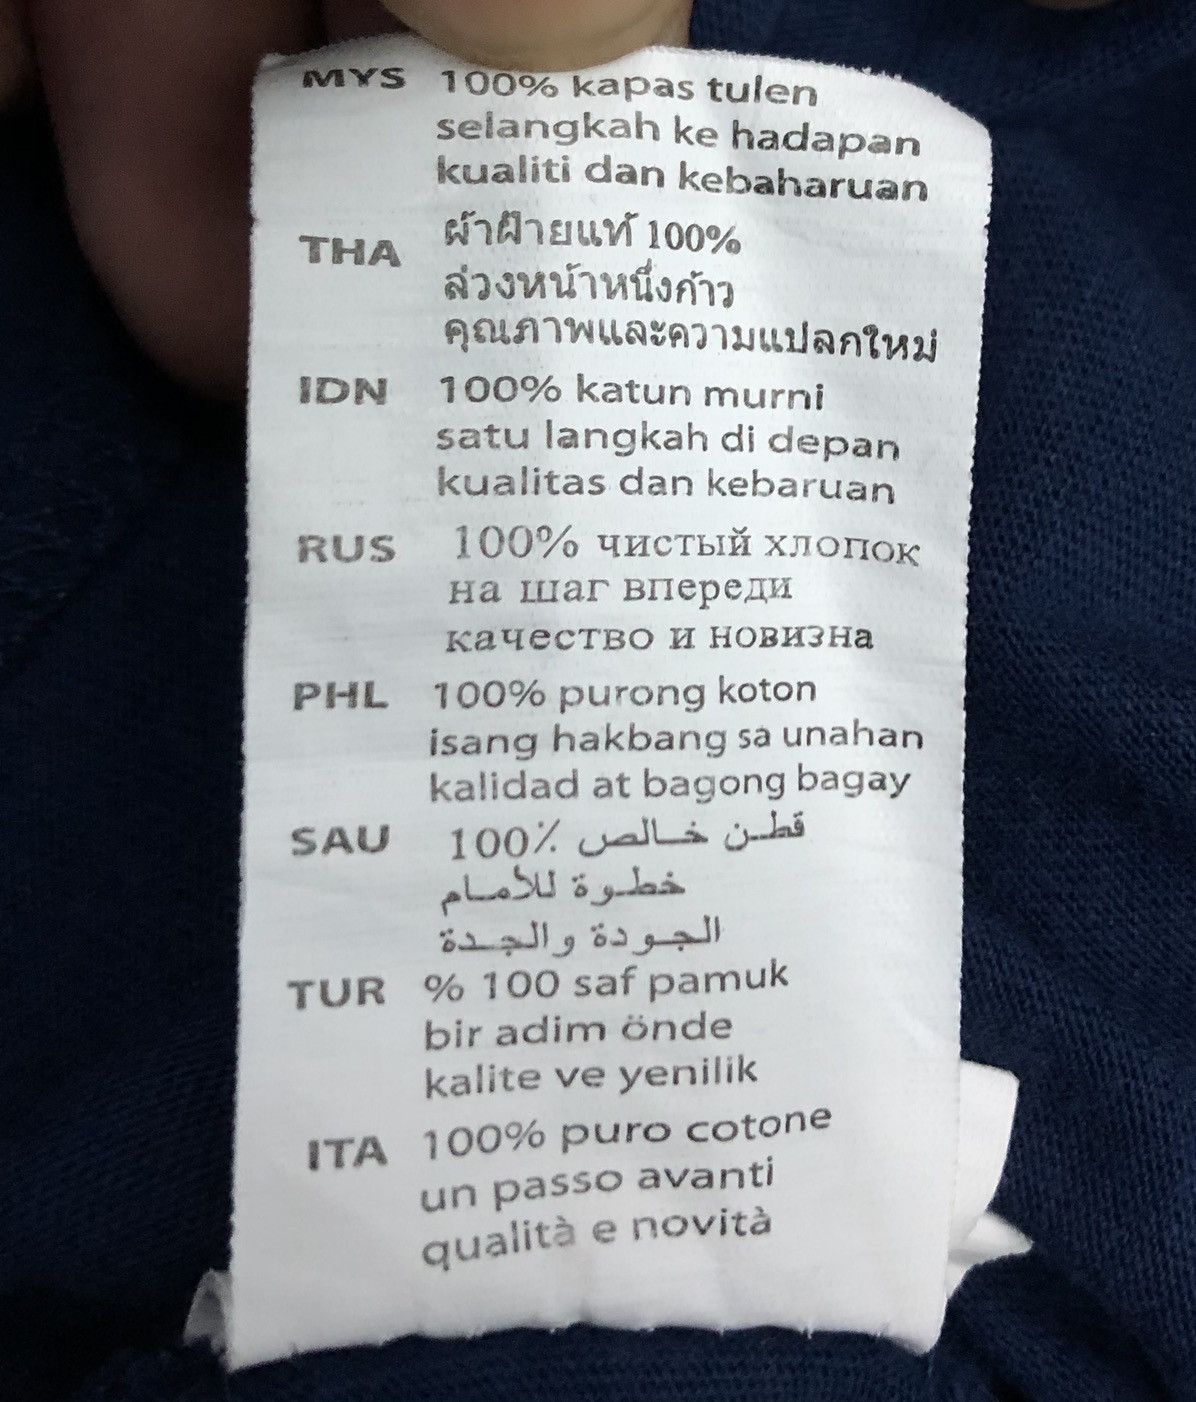 MYS 100% kapas tulen
selangkah ke hadapan
kualiti dan kebaharuan
THA ผ้าฝ้ายแท้ 100%
ล่วงหน้าหนึ่งก้าว
คุณภาพและความแปลกใหม่
IDN 100% katun murni
satu langkah di depan
kualitas dan kebaruan
RUS 100% чистый хлопок
на шаг впереди
качество и новизна
PHL 100% purong koton
isang hakbang sa unahan
kalidad at bagong bagay
SAU 100٪ قطن خالص
خطوة للأمام
الجودة والجدة
TUR % 100 saf pamuk
bir adim önde
kalite ve yenilik
ITA 100% puro cotone
un passo avanti
qualità e novità